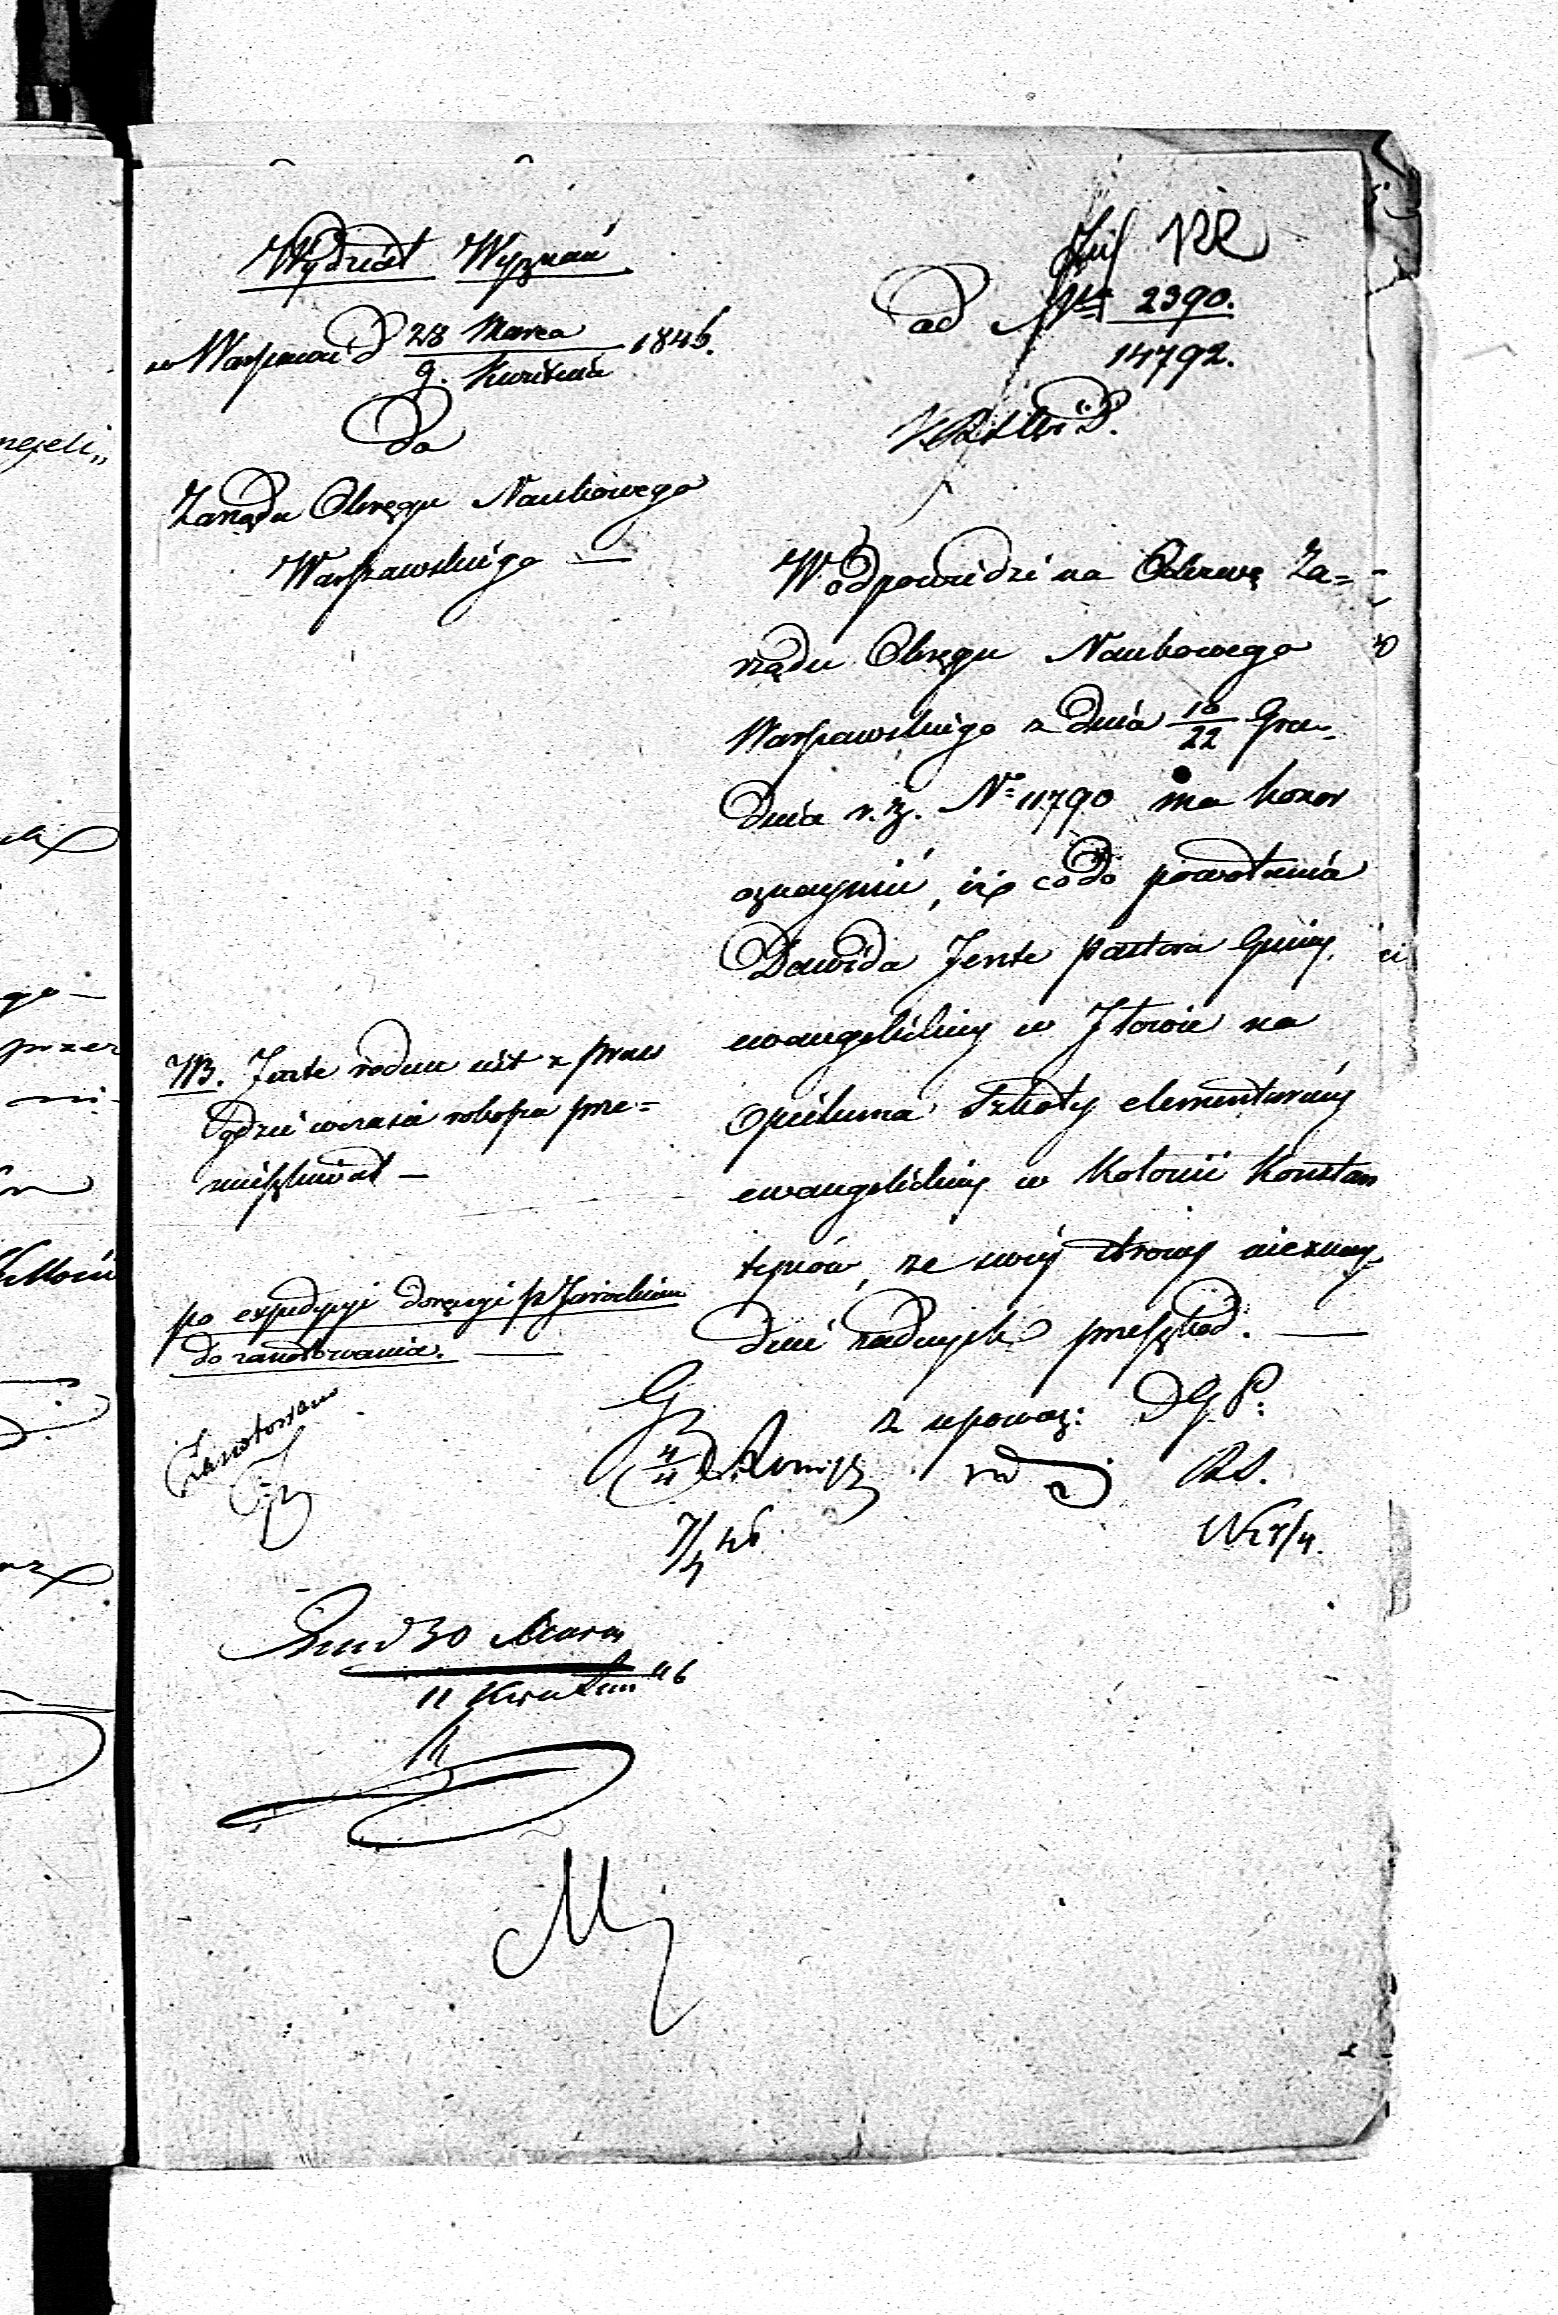 Wydział Wyznań
w Warszawie d 28 Marca
9. Kwietnia 1846.
Do
Zarządu Okręgu Naukowego
Warszawskiego —
ad № 2390.
14792.
W odpowiedzi na Odezwę Za=
rządu Okręgu Naukowego
Warszawskiego z dnia 10/22 Gru=
dnia r. z. № 11790 ma honor
oznaymić, iż co do powołania
Dawida Jente pastora Gminy
ewangelickiey w Iłowie na
Opiekuna Szkoły elementarnéy
ewangelickiey w Kolonii Konstan
tynów, ze swéy strony nieznay=
duie żadnych przeszkód. —
NB. Jente rodem iest z Prus
gdzie w czasie robosza prze=
mieszkiwał —
po expedycyi doręczyć p
do zanotowania. —
Zanotowano
z upoważ: D G P:
R S.
7/4 46
30 Marca
11 Kwietnia 46
M